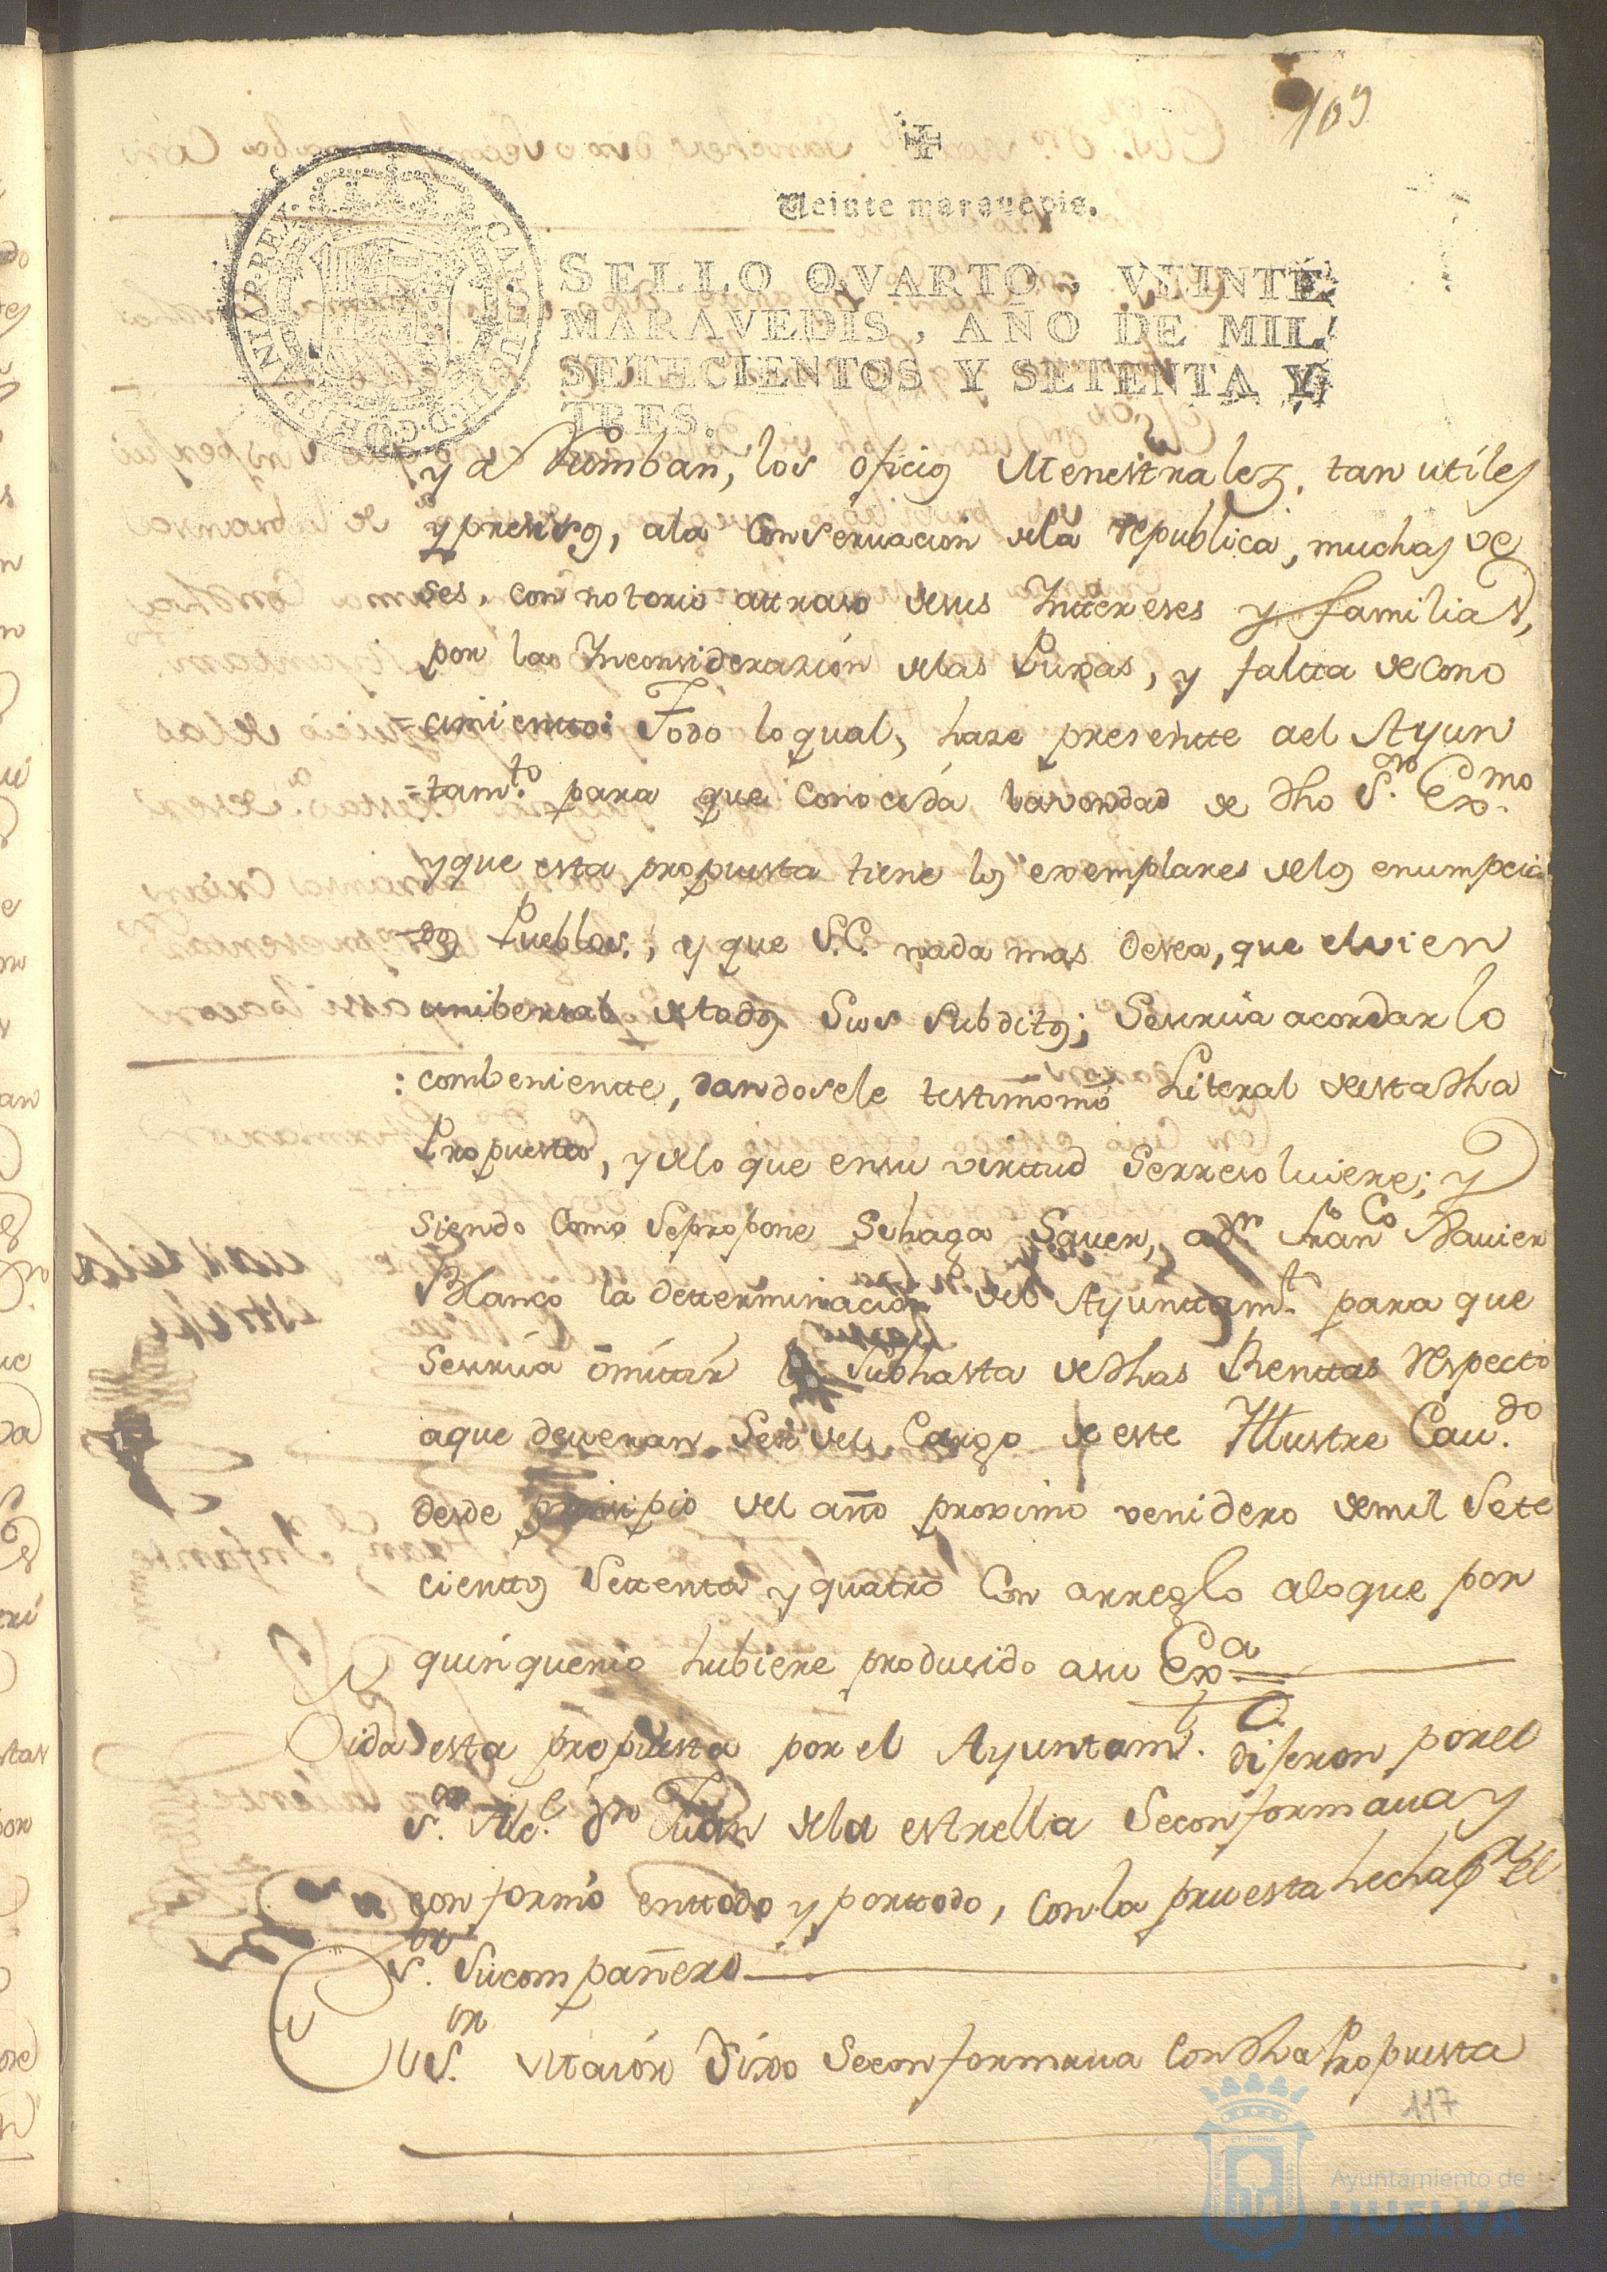 109
Veinte maravedis.
CAROLUS III D.G. HISPANIAR REX
SELLO QVARTO, VEINTE
MARAVEDIS, AÑO DE MIL
SETECIENTOS Y SETENTA Y
TRES.
y a los oficios Menestrales, tan utiles
y presisos, ala Conseruacion dela republica, muchas ve
ses, con notorio attraso desus Inttereses y familias,
por la Inconsiderazión delas Puxas, y faltta de cono
=cimientto: Todo lo qual, haze presentte a el Ayun
=tam.to para que conocida la vondad de dho S.or Exmo
y que esta propuesta tiene los exemplares delos enumpcia
dos Pueblos, y que S.E. nada mas desea, que el vien
unibersal de todos Sus Subditos; Seruiria acordar lo
combenientte, dandosele testimonio Literal de esta dha
Propuestta, y de lo que ensu virttud Serresoluiere; y
Siendo Como Sepropone Sehaga Sauer, a Dn Fran.co Xauier
Blanco la detterminacion del Ayunttam.to para que
Se sirua omittir la Subhasta de dhas Renttas respecto
aque deueran Ser del Cargo de este Illustre Cau.do
desde prinsipio del año proximo venidero de mil Sete
cienttos Settenta y quatro Con arreglo alo que por
quinquenio hubiere produsido asu Ex.a
Oida esta propuesta por el Ayuntam.to dijeron por el
S.or Alc.e Dn Juan dela estrella Seconformaua y
conformó enttodo y porttodo, con la pruesta hecha p.r el
S.or Sucompañero
El S.or Vitaior Dixo Seconformaua Con dha Propuesta
117
Ayuntamiento de
HUELVA